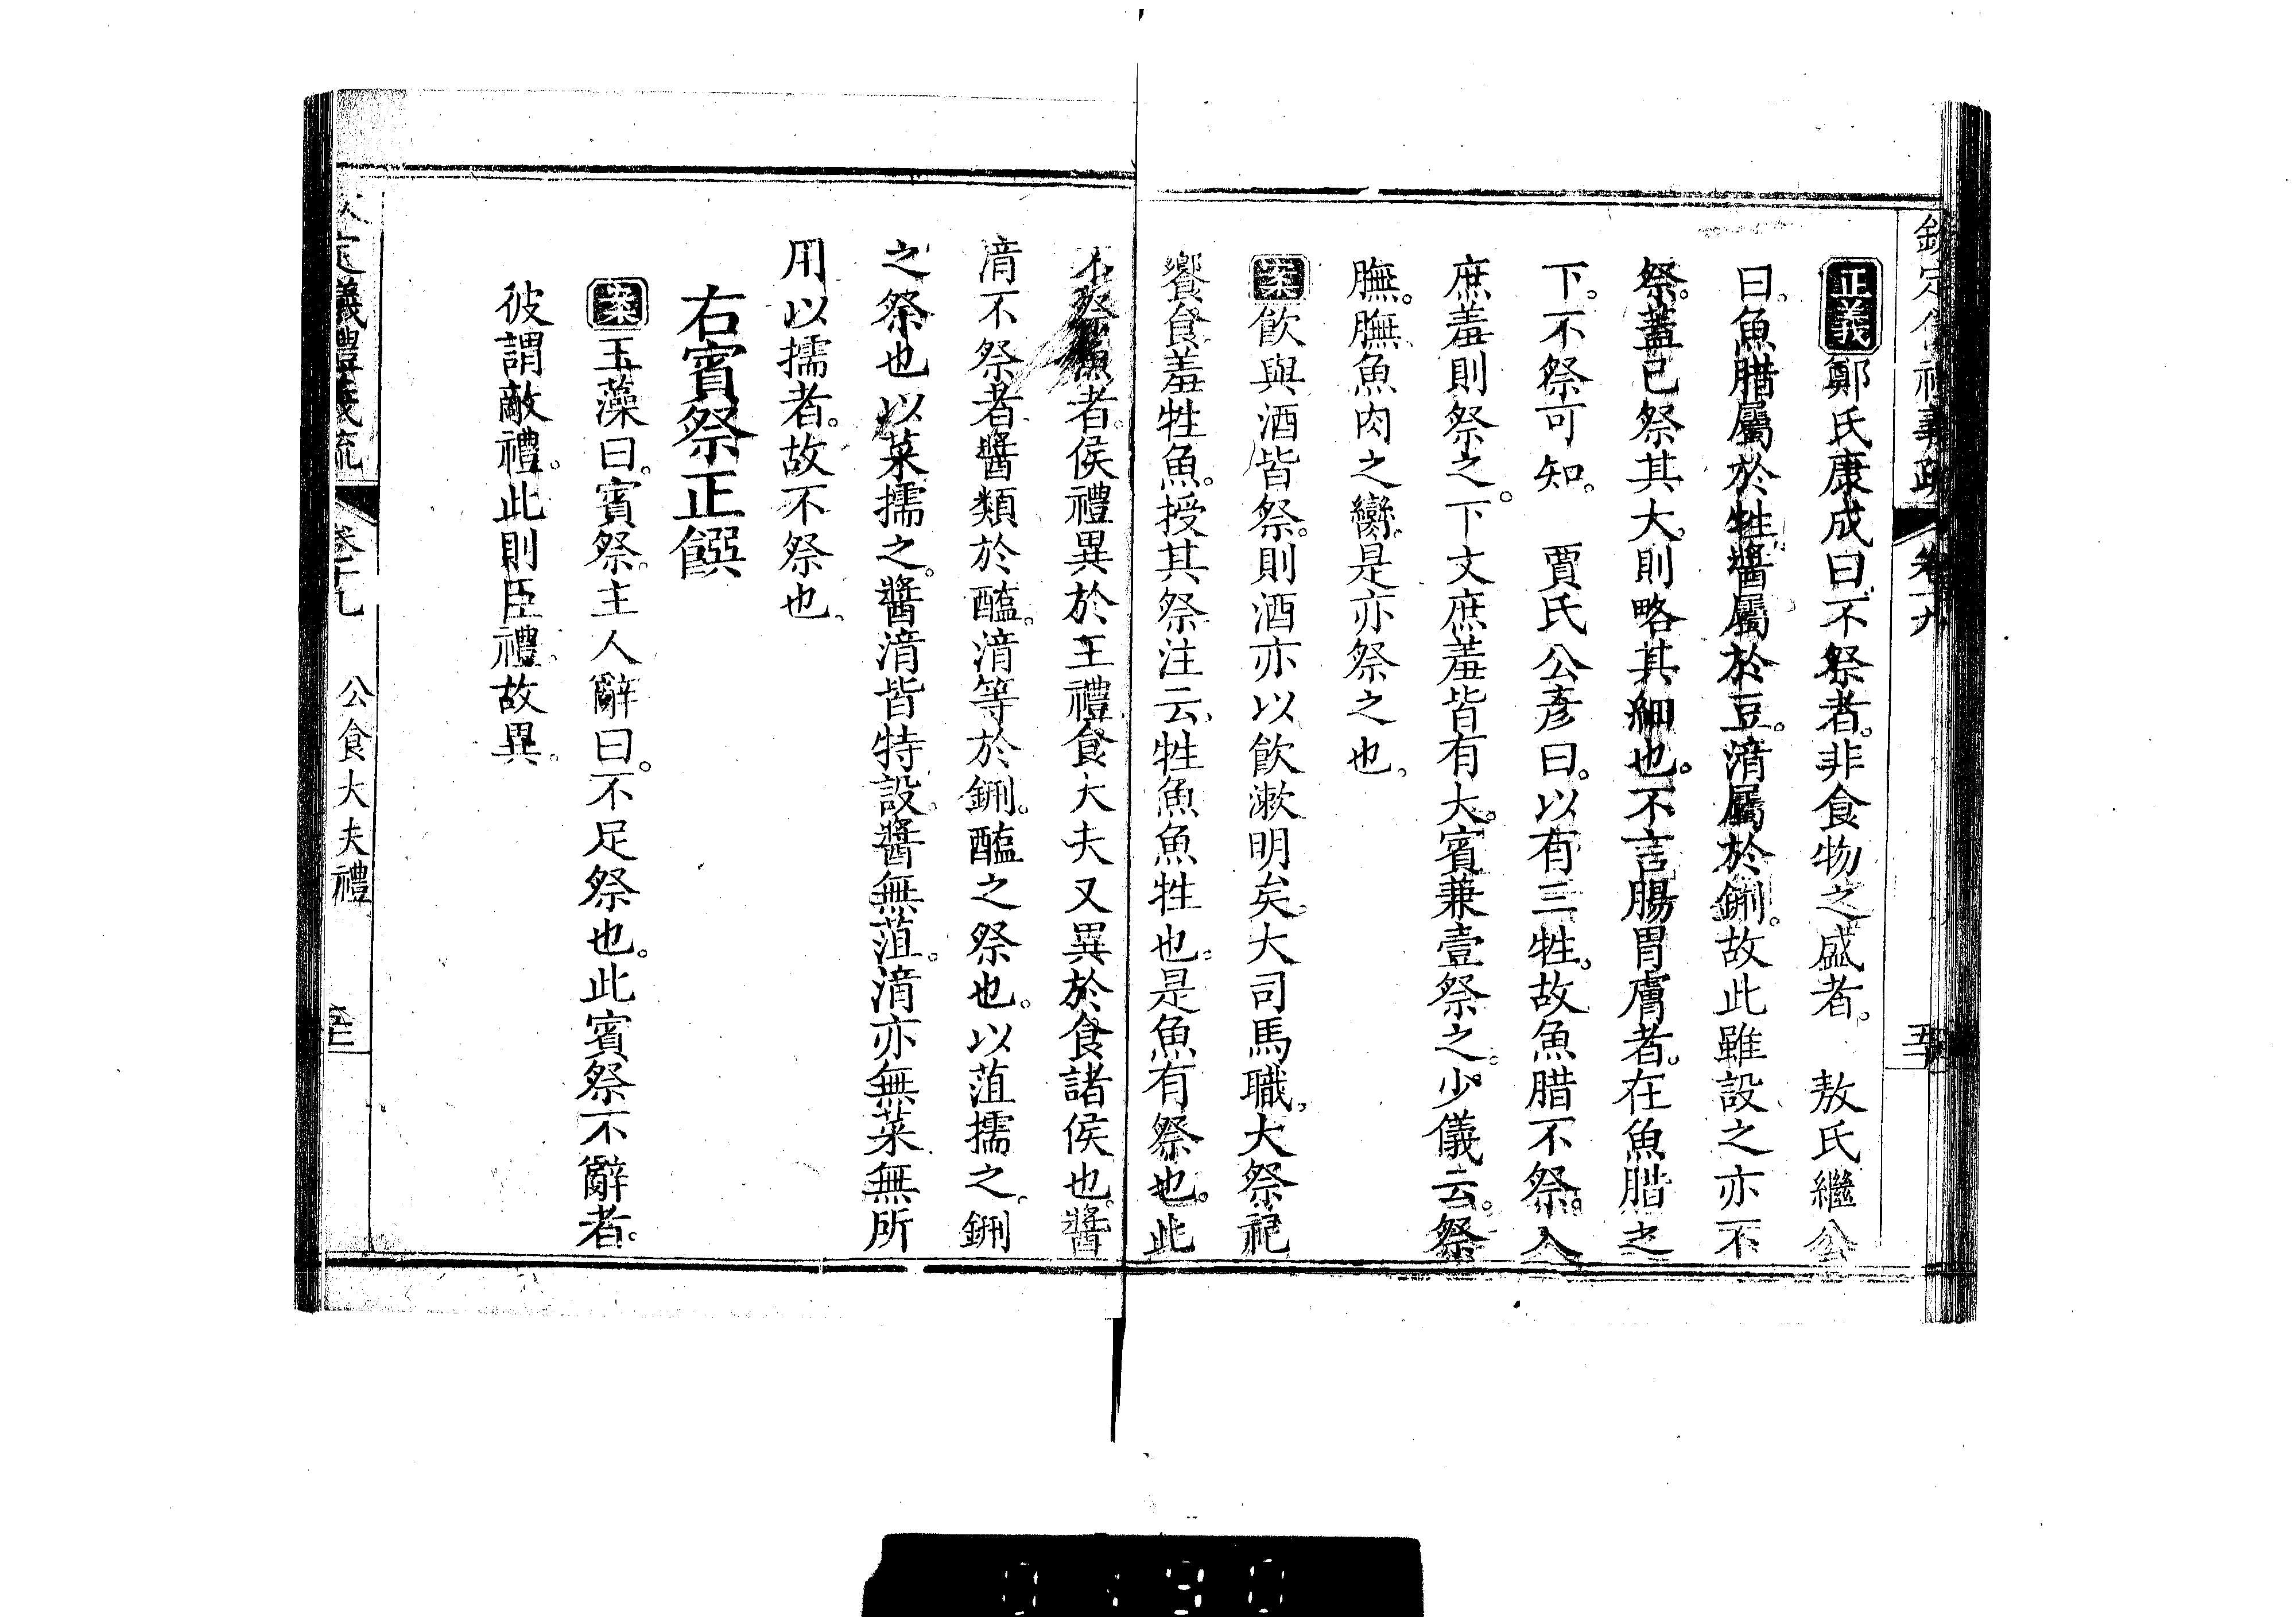 欽定儀禮義疏 卷十九
正義鄭氏康成曰不祭者。非食物之盛者。 敖氏繼公
曰。魚腊屬於牲。醬屬於豆。湆屬於鉶。故此雖設之亦不
祭。蓋已祭其大。則略其細也。不言腸胃膚者。在魚腊之
下。不祭可知。 賈氏公彥曰。以有三牲。故魚腊不祭。入
庶羞則祭之。下文庶羞皆有大。賓兼壹祭之。少儀云。祭
膴。膴魚肉之臠。是亦祭之也。
案飲與酒皆祭。則酒亦以飲漱明矣。大司馬職。大祭祀
饗食。羞牲魚。授其祭注云。牲魚魚牲也。是魚有祭也。此
不祭魚者。侯禮異於王禮。食大夫又異於食諸侯也。醬
湆不祭者。醬類於醢。湆等於鉶。醢之祭也。以菹擩之。鉶
之祭也以菜擩之。醬湆皆特設。醬無菹。湆亦無菜無所
用以擩者。故不祭也。
右賓祭正饌
案玉藻曰。賓祭。主人辭曰。不足祭也。此賓祭不辭者。
彼謂敵禮。此則臣禮。故異。
欽定儀禮義疏 卷十九 公食大夫禮